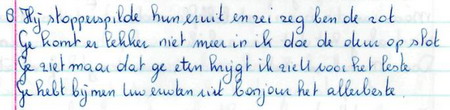 8. Hij stopper spilde hun eruit en zei zeg ben de zot
Ge komt er lekker niet meer in ik doe de deur op slot
Ge ziet maar dat ge eten krijgt ik zich voor het leste
Ge hebt bij men uw niet bonjour het allerbeste.